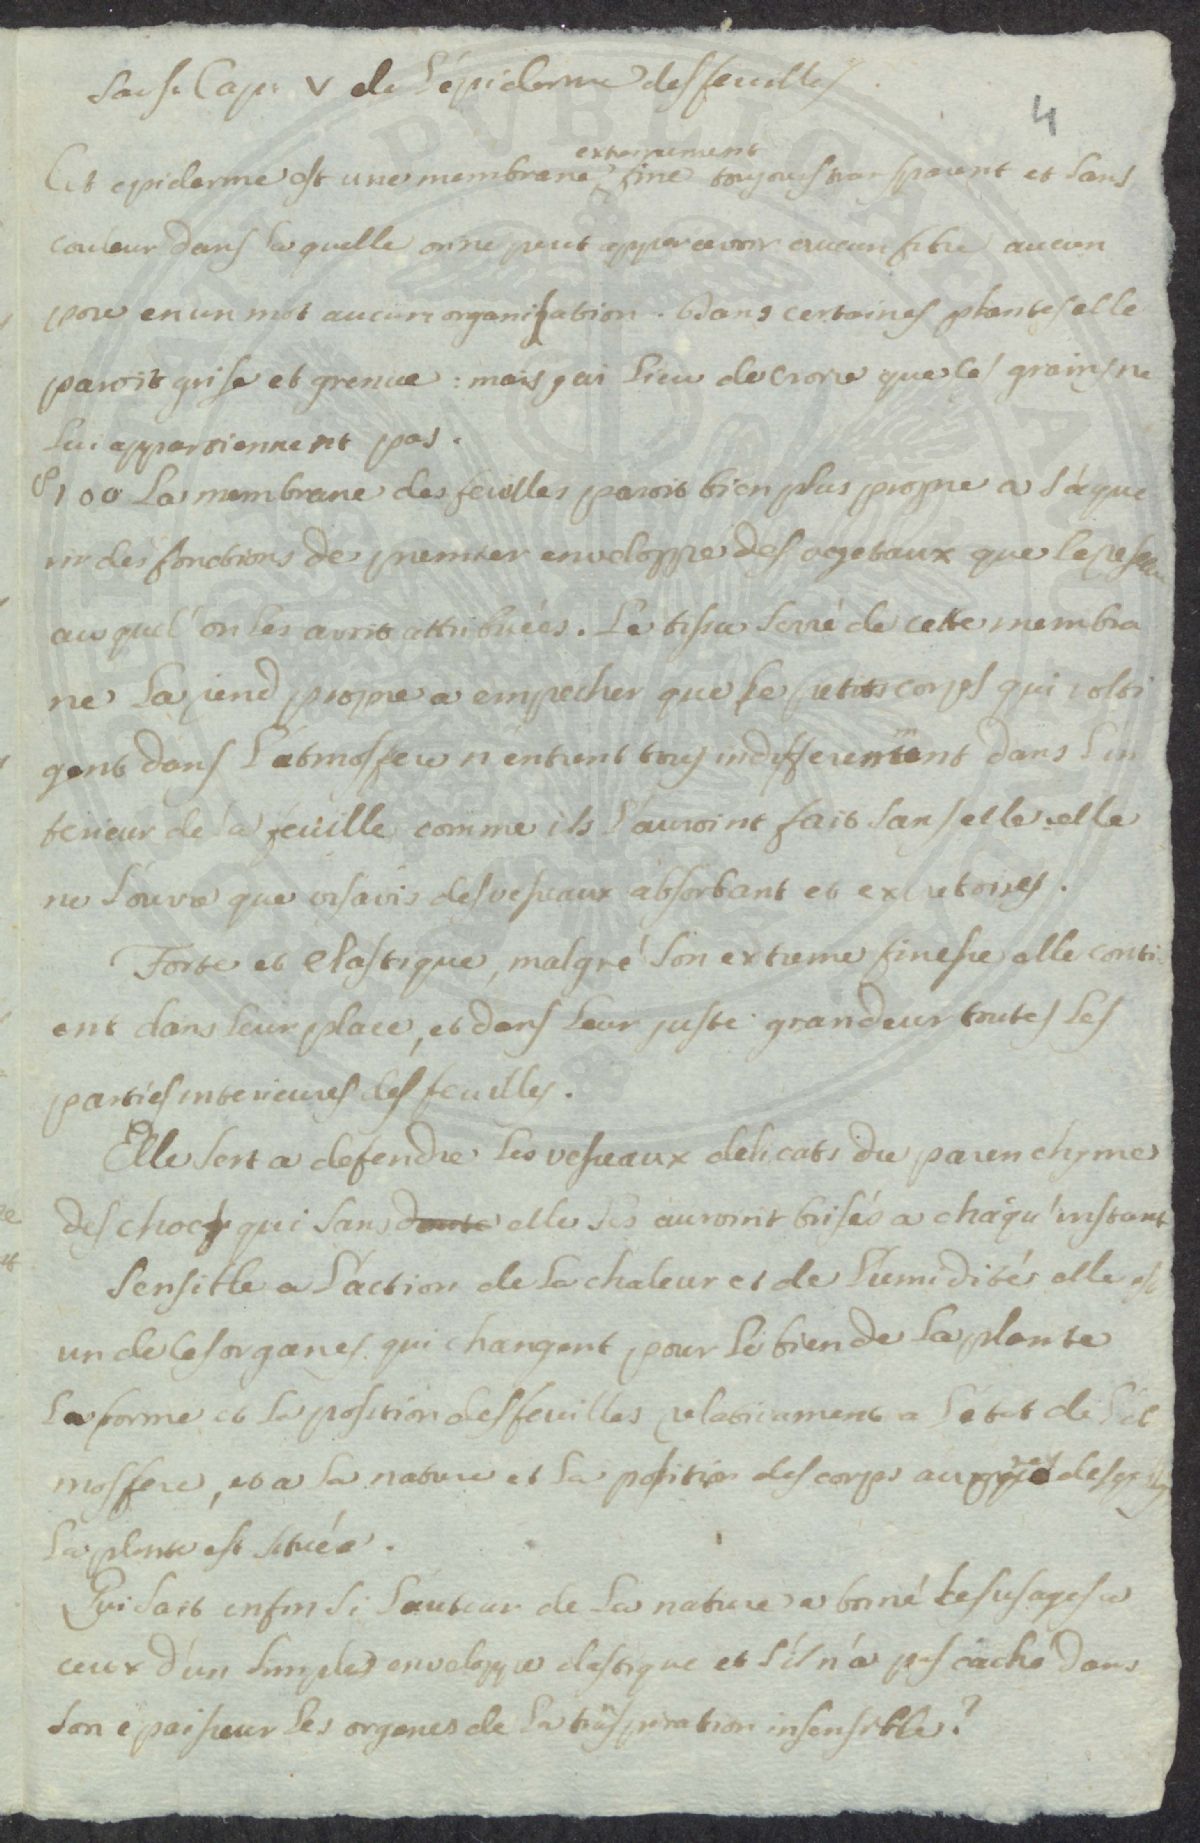 Saus. Cap. V de L'épiderme des feuilles
4
Cet epiderme est une membrane extrememnent fine toujours transparent et sans
couleur dans la quelle on ne peut appercevoir aucun fibre aucun
pore en un mot aucune organisation. Dans certaines plantes elle
paroit grise et grenue : mais j'ai lieu de croire que les grains ne
lui appartiennent pas.
§ 100 La membrane des feuilles paroit bien plus propre a s'aque
rir des fonctions de premier enveloppe des vegetaux que le reseau
au quel on les avoit attribuées. Le tissu serré de cette membra
ne la rend propre a empecher que le petits corps qui volti
gent dans l'atmosfere n'entrent tous indifferemment dans l'in
terieur de la feuille comme ils l'auroint fait sans elle. elle
ne s'ouvre que visavis des vesseaux absorbant et excretoires.
Forte et elastique, malgré son extreme finesse elle conti
ent dans leur place, et dans leur juste grandeur toutes les
parties interieures des feuilles.
Elle sert a defendre les vesseaux delicats du parenchyme
des chocs qui sans doute elle les auroint brisés a chaqu' instant
Sensible a l'action de la chaleur et de l'umidités elle est
un de ces organes qui changent pour le bien de la plante
la forme et la position des feuilles relativement a l'etat de l'at
mosfere, et a la nature et la position des corps desquels
la plante est située.
Qui sait enfin si l'auteur de la nature a borné les usages a
ceux d'un simples enveloppe elastique et s'il n'a pas caché dans
son epaisseur les organes de la trāspiration insensible?